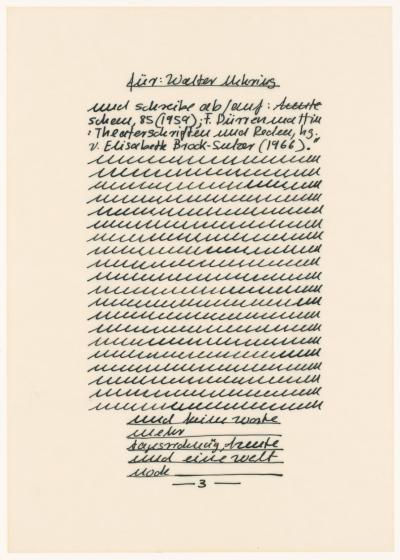 für: Walter Mehring
und schreibe ab/auf: heute
85 (1959); F. Dürrenmatt in
: Theaterschriften und Reden, hg.
v. Elisabeth Brock-Sulzer (1966)."
und keine worte
mehr
tagesrechnung, heute
und eine welt
noch
— 3 —